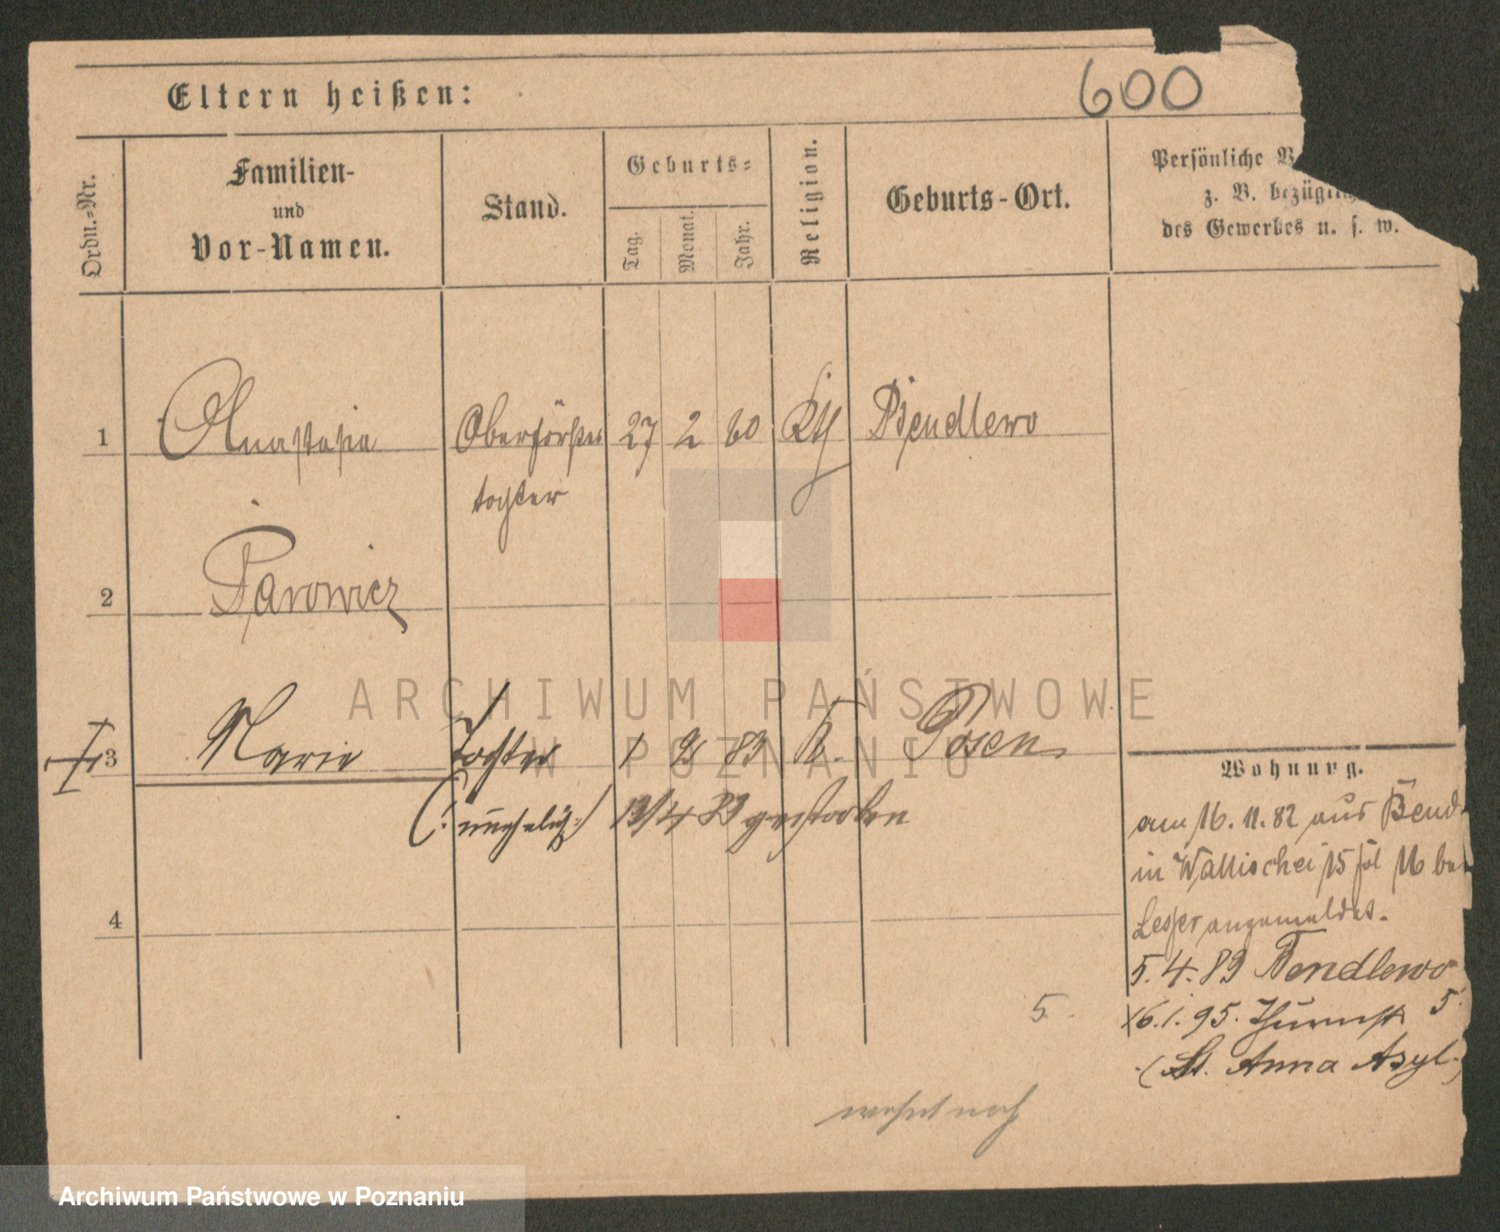 Eltern heißen:
600
Ordn.-Nr.
Familien-
und
Vor-Namen.
Stand.
Geburts-
Tag.
Monat.
Jahr.
Religion.
Geburts-Ort.
Persönliche
z. B.
des Gewerbes u. s. w.
1 Anastasia Oberförster 27 2 60 Kth Bendlewo
tochter
2 Parowicz
3 Marie Tochter 1 83 K. Posen
(: unehelich :) 13/4 83 gestorben
4
Wohnung.
am 16. 11. 82 aus Bend
in Wallischei 15 16 bei
Lesser angemeldet.
5. 4. 83 Bendlewo
16. 1. 95. Thurmstr 5.
(St. Anna Asyl.)
5.
wohnt noch
ARCHIWUM PAŃSTWOWE
W POZNANIU
Archiwum Państwowe w Poznaniu